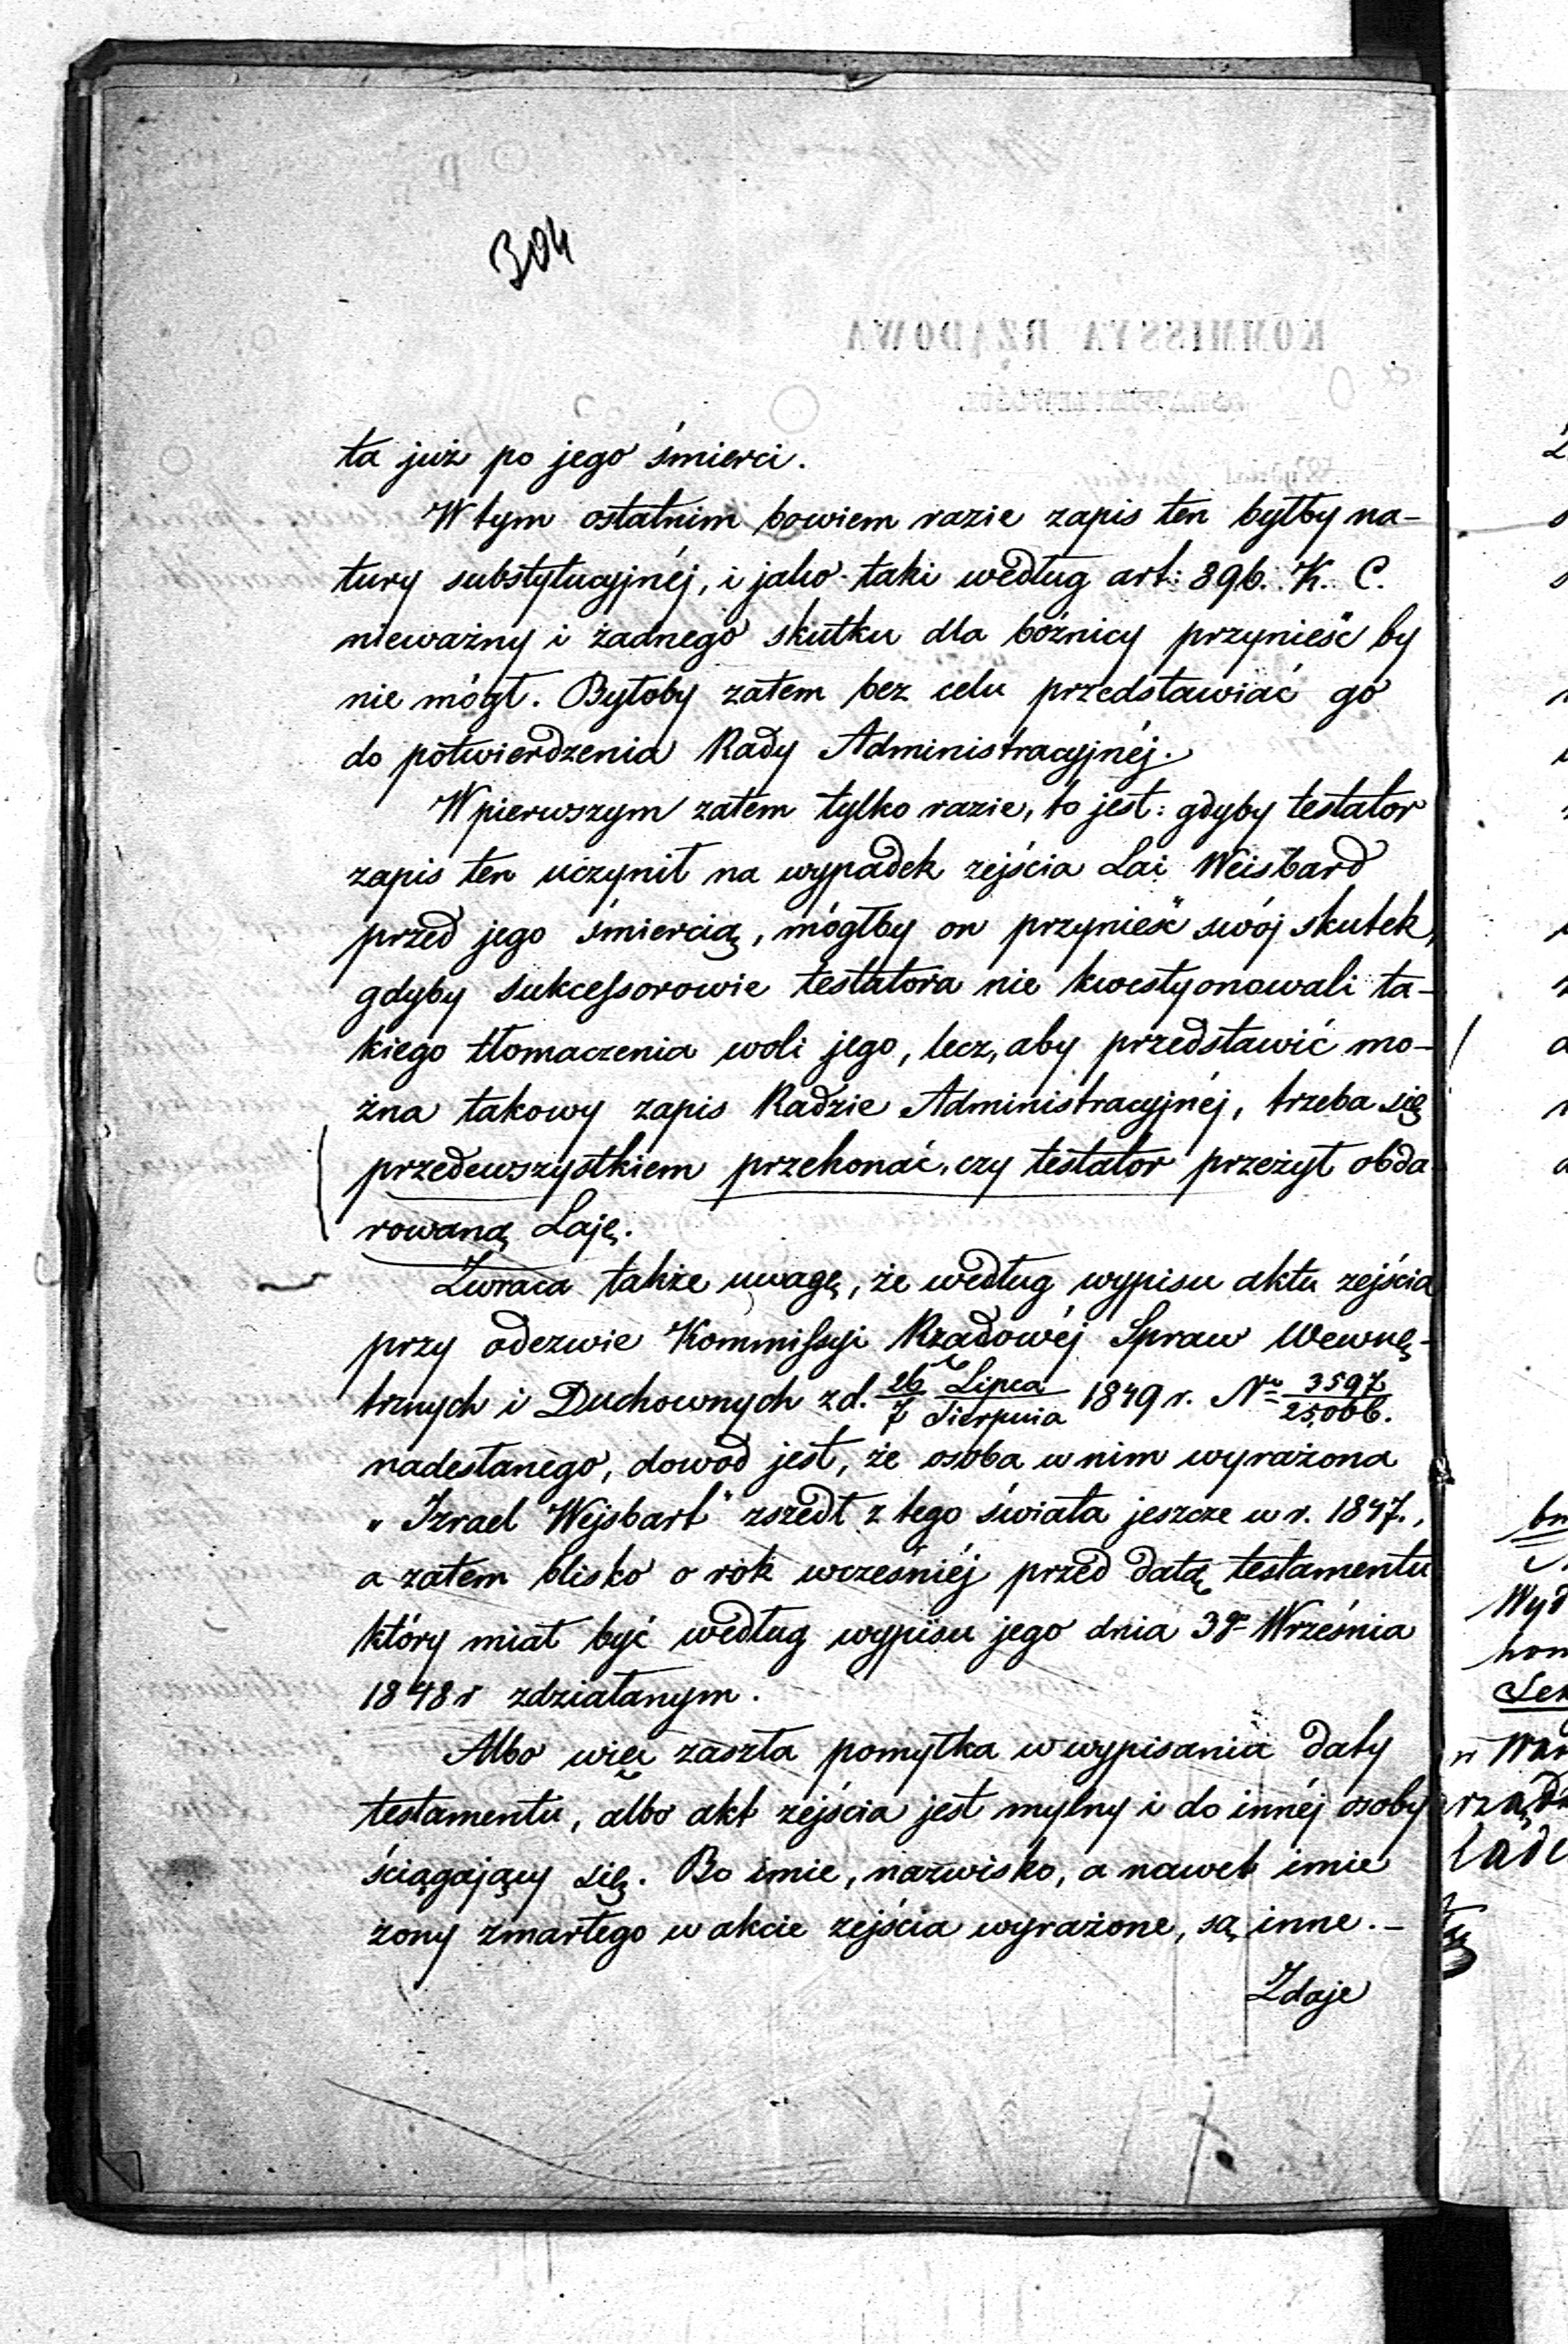 304
ta już po jego śmierci.
W tym ostatnim bowiem razie zapis ten byłby na-
tury substytucyjnéj, i jako taki według art: 896. K. C.
nieważny i żadnego skutku dla bóżnicy przynieść by
nie mógł. Byłoby zatem bez celu przedstawiać go
do potwierdzenia Rady Administracyjnéj.
W pierwszym zatem tylko razie, to jest: gdyby testator
zapis ten uczynił na wypadek zejścia Lai Weisbard
przed jego śmiercią, mógłby on przynieść swój skutek,
gdyby sukcessorowie testatora nie kwestyonowali ta-
kiego tłomaczenia woli jego, lecz, aby przedstawić mo-
żna takowy zapis Radzie Administracyjnéj, trzeba się
przedewszystkiem przekonać, czy testator przeżył obda-
rowaną Laję.
Zwraca także uwagę, że według wypisu aktu zejścia
przy odezwie Kommissyi Rządowéj Spraw Wewnę-
trznych i Duchownych z d. 26 Lipca / 7 Sierpnia 1849 r. No 3597 / 25,006.
nadesłanego, dowód jest, że osoba w nim wyrażona
„Izrael Wejsbart" zszedł z tego świata jeszcze w r. 1847.,
a zatem blisko o rok wcześniéj przed datą testamentu
który miał być według wypisu jego dnia 3go Września
1848 r zdziałanym.
Albo więc zaszła pomyłka w wypisaniu daty
testamentu, albo akt zejścia jest mylny i do innéj osoby
ściągający się. Bo imie, nazwisko, a nawet imie
żony zmarłego w akcie zejścia wyrażone, są inne. –
Zdaje